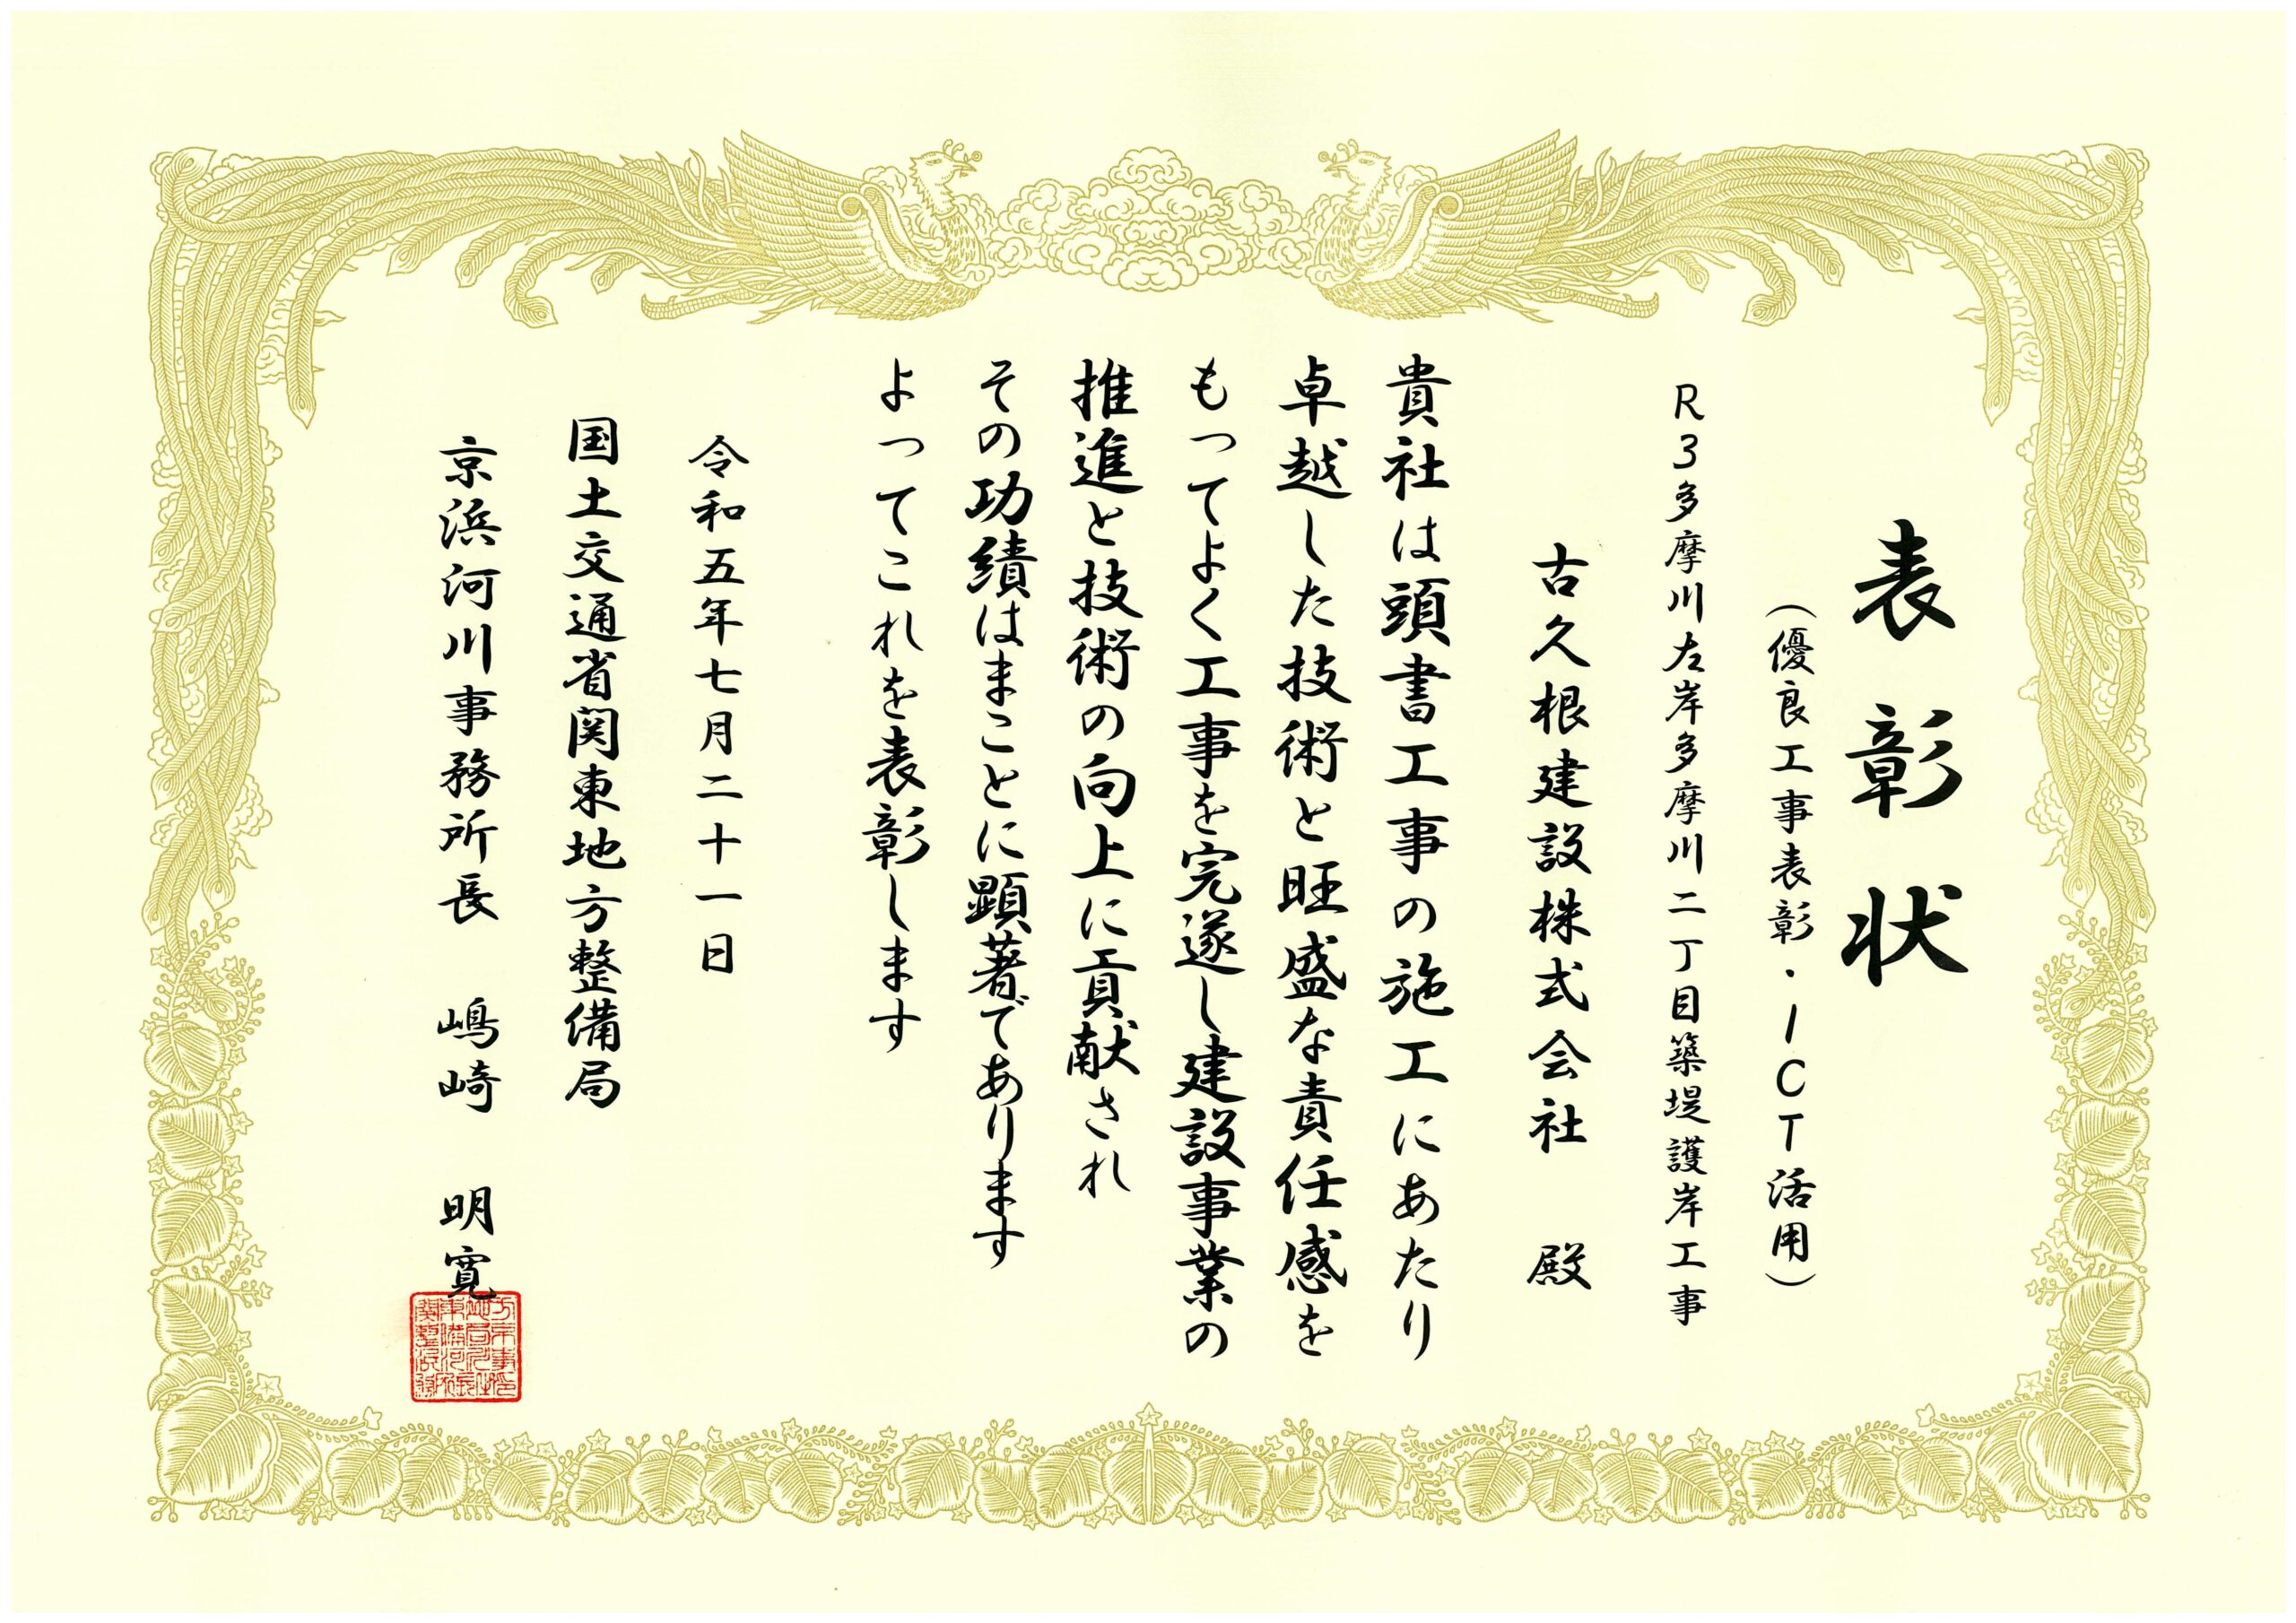 表彰状
（優良工事表彰・ICT活用）
R3多摩川左岸多摩川二丁目築堤護岸工事
古久根建設株式会社 殿
貴社は頭書工事の施工にあたり
卓越した技術と旺盛な責任感を
もってよく工事を完遂し建設事業の
推進と技術の向上に貢献され
その功績はまことに顕著であります
よってこれを表彰します
令和五年七月二十一日
国土交通省関東地方整備局
京浜河川事務所長 嶋崎 明寛